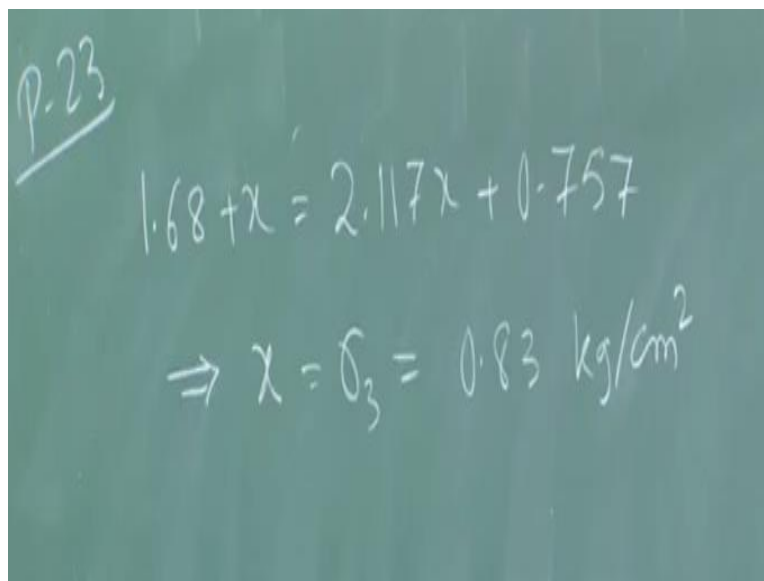 P-23
1.68 + x = 2.117x + 0.757
⇒ x = σ₃ = 0.83 kg/cm²